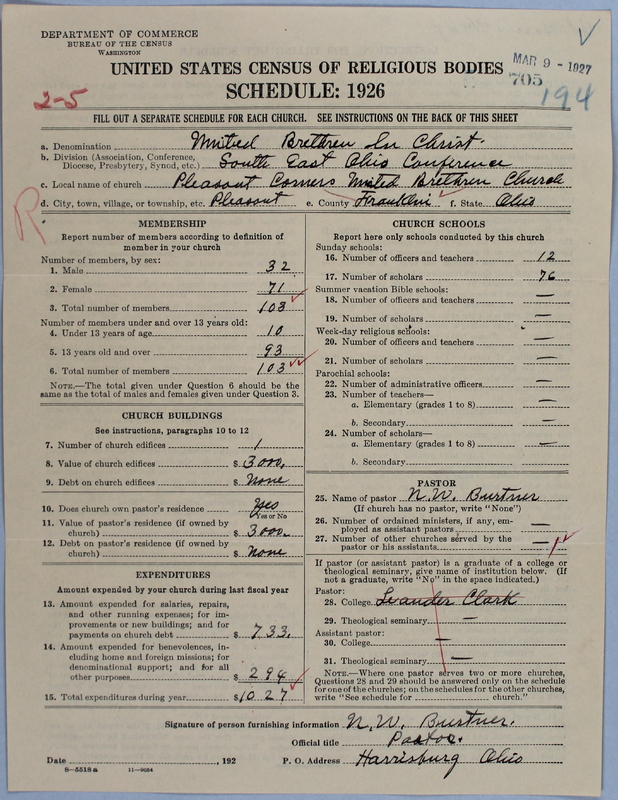 DEPARTMENT OF COMMERCE
BUREAU OF THE CENSUS
WASHINGTON
MAR 9 - 1927
UNITED STATES CENSUS OF RELIGIOUS BODIES
705
2-5
SCHEDULE: 1926
194
FILL OUT A SEPARATE SCHEDULE FOR EACH CHURCH. SEE INSTRUCTIONS ON THE BACK OF THIS SHEET
a. Denomination United Brethren In Christ.
b. Division (Association, Conference,
Diocese, Presbytery, Synod, etc.) South East Ohio Conference
c. Local name of church Pleasant Corners United Brethren Church
d. City, town, village, or township, etc. Pleasant e. County Franklin f. State Ohio
R
MEMBERSHIP
Report number of members according to definition of
member in your church
Number of members, by sex:
1. Male 32
2. Female 71
3. Total number of members 103
Number of members under and over 13 years old:
4. Under 13 years of age 10
5. 13 years old and over 93
6. Total number of members 103
NOTE.—The total given under Question 6 should be
same as the total of males and females given under Question 3.
CHURCH BUILDINGS
See instructions, paragraphs 10 to 12
7. Number of church edifices 1
8. Value of church edifices $ 3000.
9. Debt on church edifices $ None
10. Does church own pastor's residence Yes
(Yes or No)
11. Value of pastor's residence (if owned by
church) $ 3000.
12. Debt on pastor's residence (if owned by
church) $ None
EXPENDITURES
Amount expended by your church during last fiscal year
13. Amount expended for salaries, repairs,
and other running expenses; for im-
provements or new buildings; and for
payments on church debt $ 733.
14. Amount expended for benevolences, in-
cluding home and foreign missions; for
denominational support; and for all
other purposes $ 294
15. Total expenditures during year $ 1027
CHURCH SCHOOLS
Report here only schools conducted by this church
Sunday schools:
16. Number of officers and teachers 12
17. Number of scholars 76
Summer vacation Bible schools:
18. Number of officers and teachers —
19. Number of scholars —
Week-day religious schools:
20. Number of officers and teachers —
21. Number of scholars —
Parochial schools:
22. Number of administrative officers —
23. Number of teachers—
a. Elementary (grades 1 to 8) —
b. Secondary —
24. Number of scholars—
a. Elementary (grades 1 to 8) —
b. Secondary
PASTOR
25. Name of pastor N. W. Burtner
(If church has no pastor, write "None")
26. Number of ordained ministers, if any, em-
ployed as assistant pastors —
27. Number of other churches served by the
pastor or his assistants — 1
If pastor (or assistant pastor) is a graduate of a college or
theological seminary, give name of institution below. (If
not a graduate, write "No" in the space indicated.)
Pastor:
28. College Leander Clark
29. Theological seminary —
Assistant pastor:
30. College —
31. Theological seminary —
NOTE.—Where one pastor serves two or more churches,
Questions 28 and 29 should be answered only on the schedule
for one of the churches; on the schedules for the other churches,
write "See schedule for church."
Signature of person furnishing information N. W. Burtner.
Official title Pastor.
Date , 192 P. O. Address Harrisburg Ohio
8—5518 a 11—9084